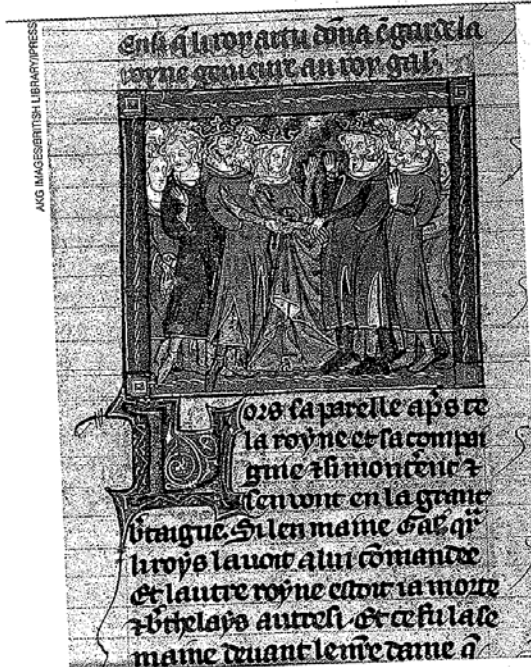 AKG IMAGES/BRITISH LIBRARY/IPRESS
Ensi q̄ li roy artu dōna ē garde la
royne genieure au roy gal'.
Lors saparelle ap's ce
la royne et sa compai
gnie ⁊ si montēt ⁊
sen vont en la grant
b'taigne. Si len maine Gal'. qr̄
li roys lauoit a lui cōmandee
Et lautre royne estoit ia morte
⁊ b'thelays autresi. Et ce fu la se
maine deuant dame q̄